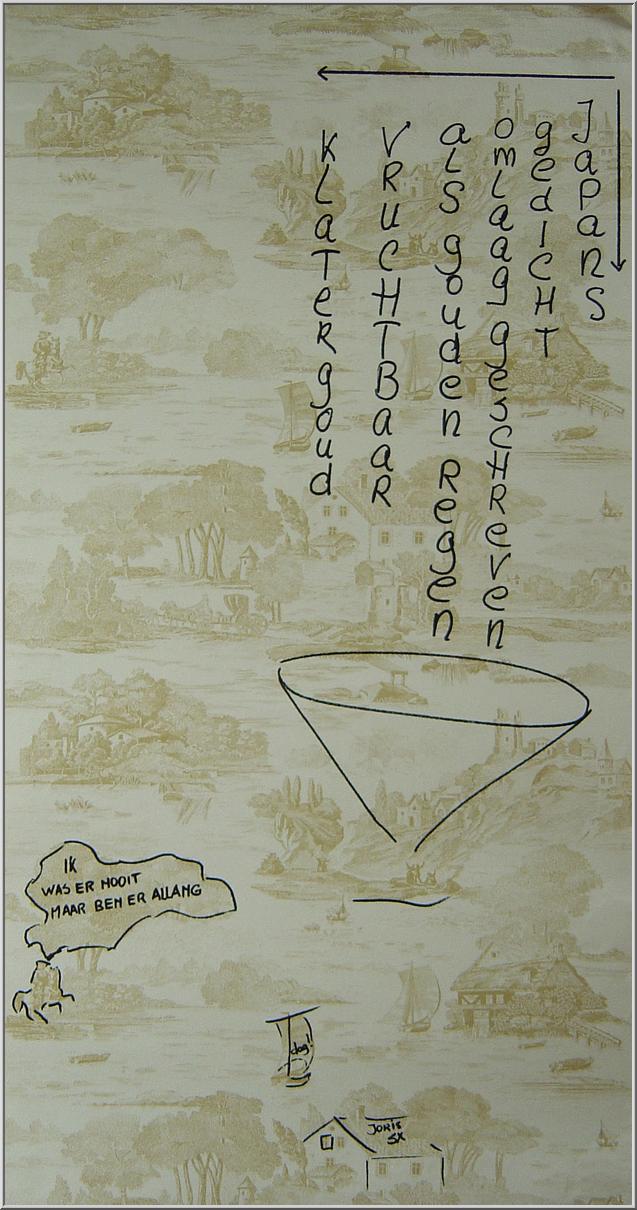 Japans
gedicht
omlaag geschreven
als gouden regen
vruchtbaar
klatergoud
IK
WAS ER NOOIT
MAAR BEN ER ALLANG
dag!
JORIS
SX